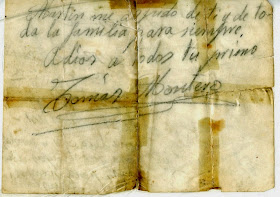 Martin me acuerdo de ti y de to
da la familia para siempre.
Adios a todos tu primo
Tomás Montero